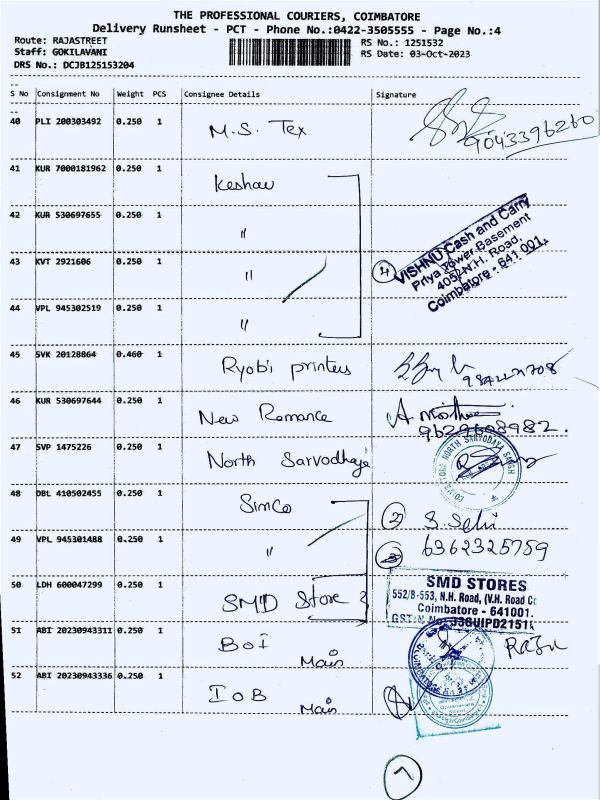 THE PROFESSIONAL COURIERS, COIMBATORE
Delivery Runsheet - PCT - Phone No.:0422-3505555 - Page No.:4
Route: RAJASTREET
Staff: GOKILAVANI
DRS No.: DCJB125153204
RS No.: 1251532
RS Date: 03-Oct-2023
S No Consignment No Weight PCS Consignee Details Signature
40 PLI 200303492 0.250 1 M.S. Tex
9043396260
41 KUR 7000181962 0.250 1 Keshav
42 KUR 530697655 0.250 1 "
43 KVT 2921606 0.250 1 "
4
VISHNU Cash and Carry
Priya Tower Basement
405, N.H. Road,
Coimbatore - 641 001.
44 VPL 945302519 0.250 1 "
45 SVK 20128864 0.460 1 Ryobi printers
46 KUR 530697644 0.250 1 New Romance
9629608982.
47 SVP 1475226 0.250 1 North Sarvodhaya
48 DBL 410502455 0.250 1 Simco
2
49 VPL 945301488 0.250 1 "
6362325759
50 LDH 600047299 0.250 1 SMD Store
SMD STORES
552/B-553, N.H. Road, (V.H. Road
Coimbatore - 641001.
51 ABI 20230943311 0.250 1 BOI Main
Raju
52 ABI 20230943336 0.250 1 IOB Main